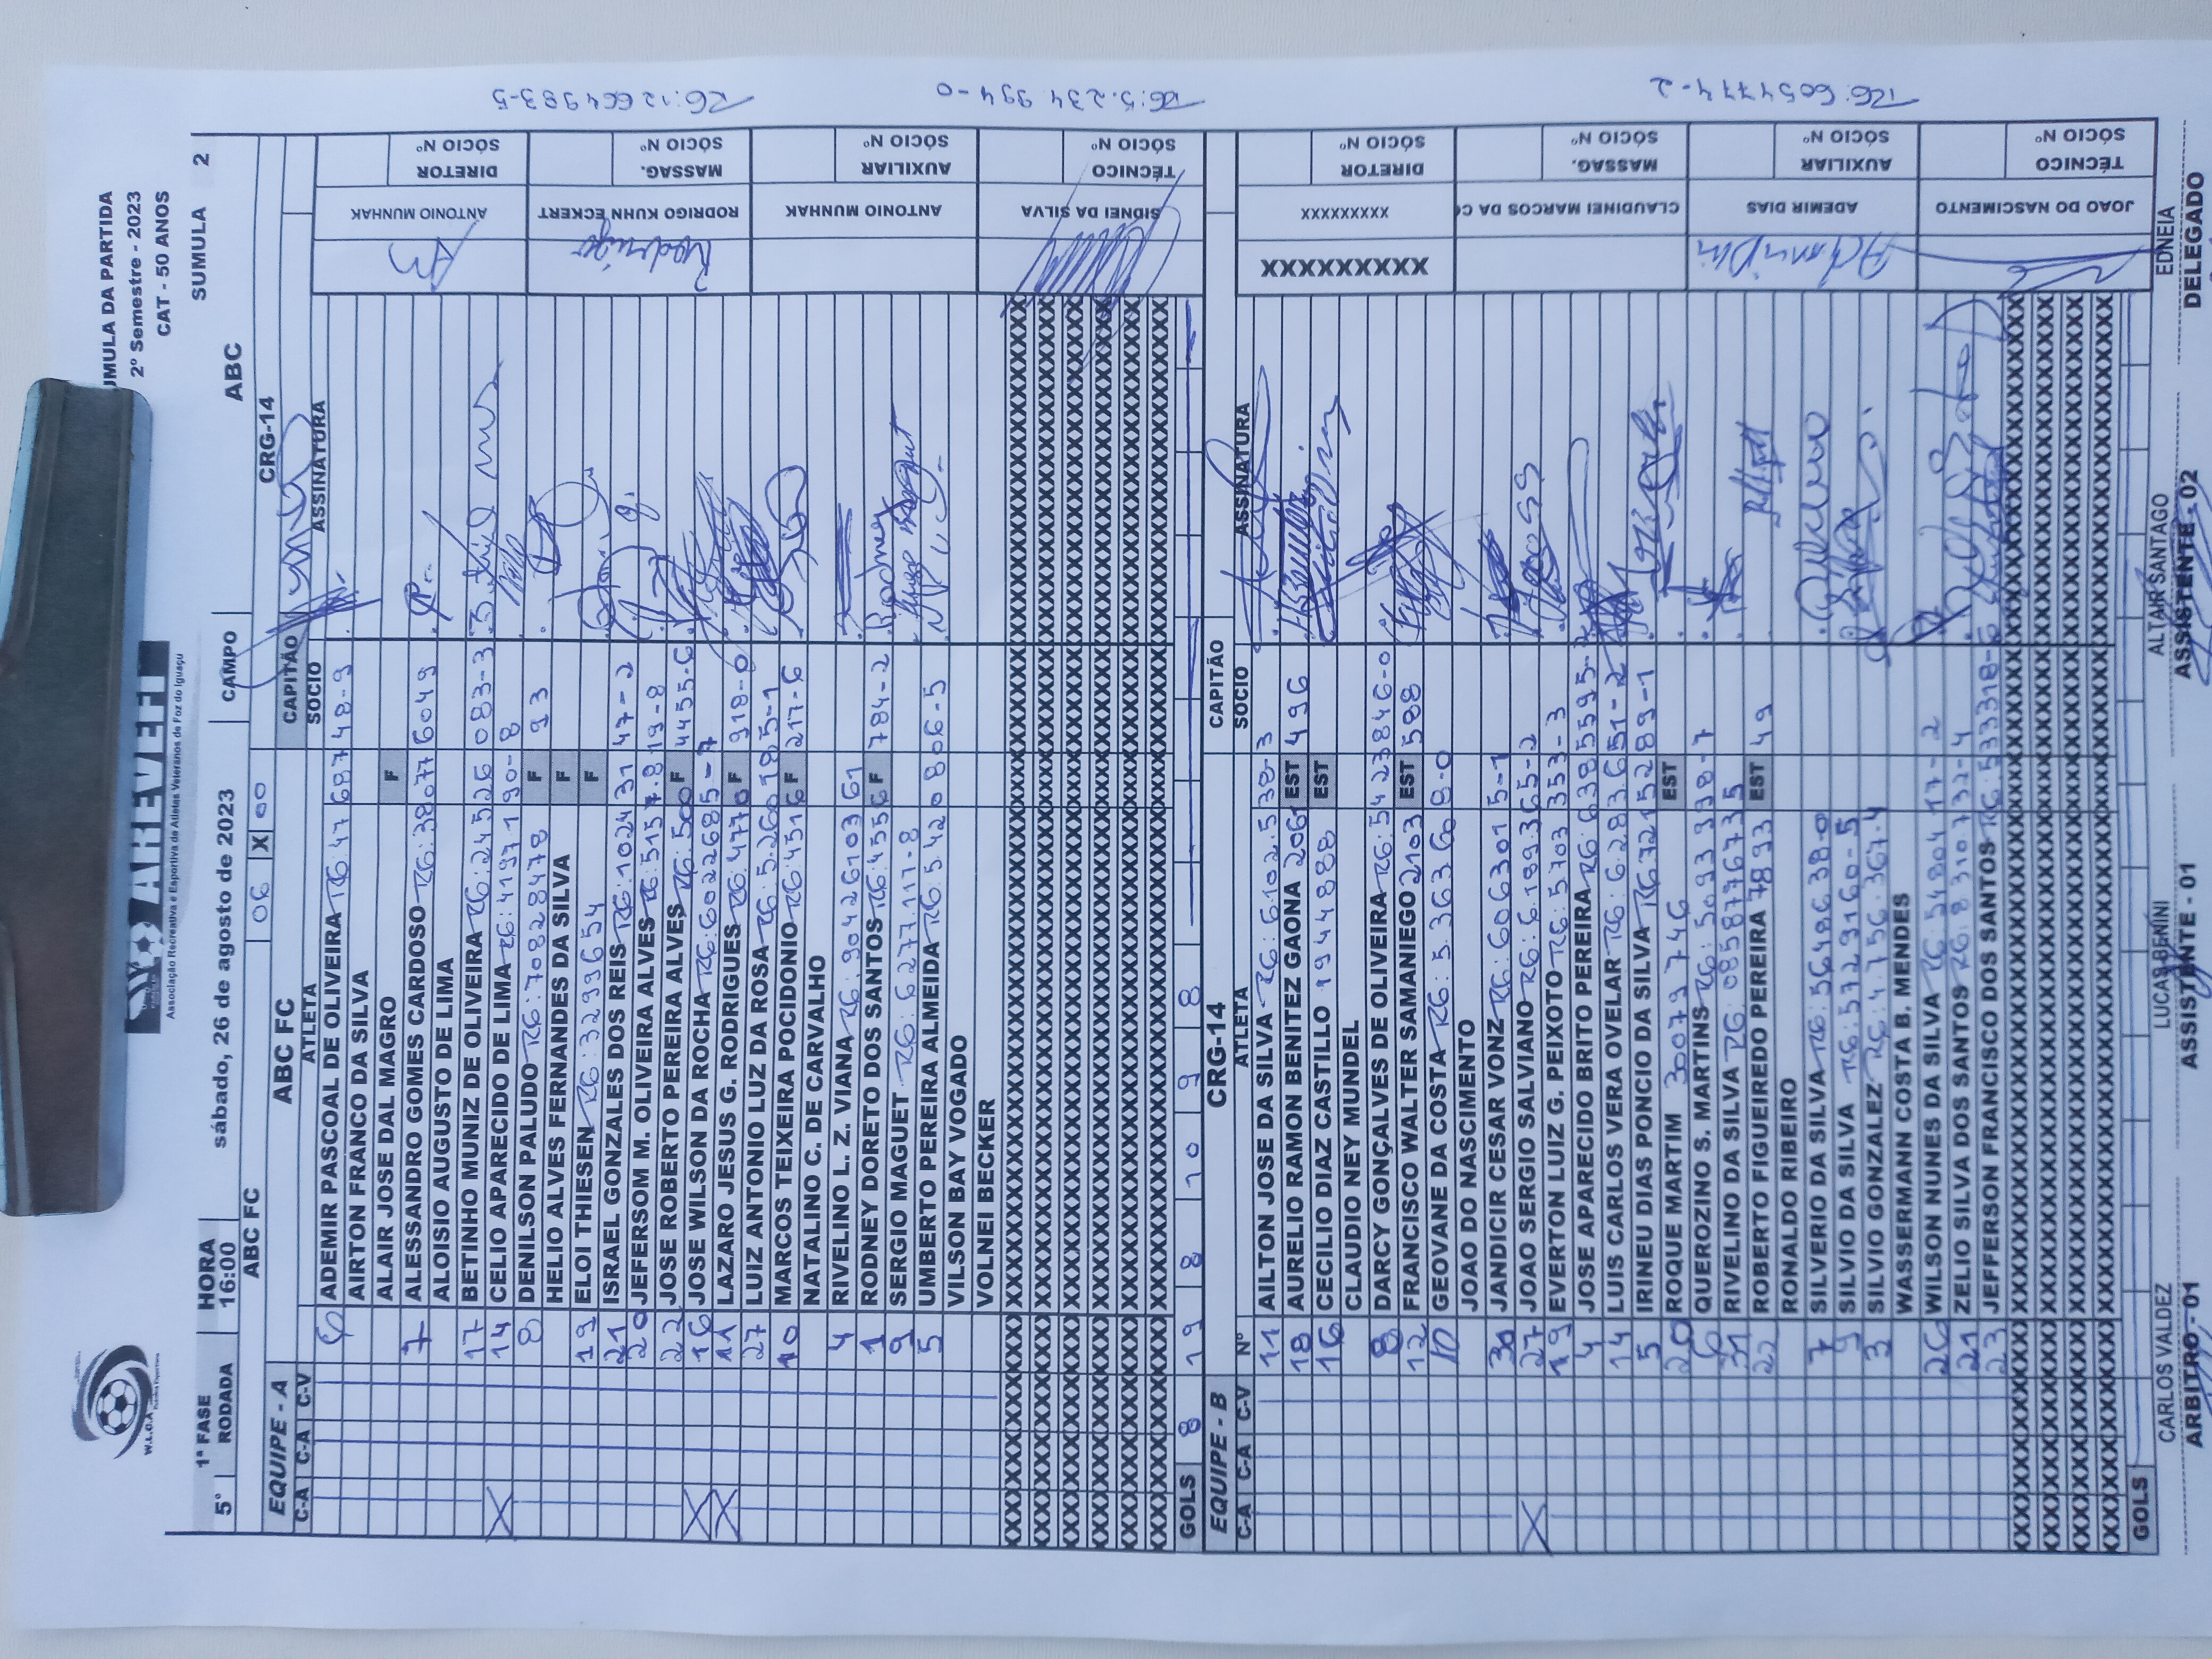 SUMULA DA PARTIDA
2º Semestre - 2023
CAT - 50 ANOS
W.L.O.A
AREVEFI
Associação Recreativa e Esportiva de Atletas Veteranos de Foz do Iguaçu
1ª FASE HORA CAMPO SUMULA 2
5º RODADA 16:00 sábado, 26 de agosto de 2023 ABC
ABC FC 06 X 00 CRG-14
EQUIPE - A ABC FC CAPITÃO
C-A C-A C-V ATLETA SOCIO ASSINATURA
6 ADEMIR PASCOAL DE OLIVEIRA RG:47 687 48-9
AIRTON FRANCO DA SILVA
ALAIR JOSE DAL MAGRO F
7 ALESSANDRO GOMES CARDOSO RG:38077 6049
ALOISIO AUGUSTO DE LIMA
17 BETINHO MUNIZ DE OLIVEIRA RG:245 526 083-3
X 14 CELIO APARECIDO DE LIMA RG:4197190-8
8 DENILSON PALUDO RG:70828478 F 93
HELIO ALVES FERNANDES DA SILVA F
19 ELOI THIESEN RG:3299654 F
21 ISRAEL GONZALES DOS REIS RG:1024 31 47-2
20 JEFERSOM M. OLIVEIRA ALVES RG:5157.819-8
22 JOSE ROBERTO PEREIRA ALVES RG:500 F 4455-6
X 16 JOSE WILSON DA ROCHA RG:6022685-7
X 11 LAZARO JESUS G. RODRIGUES RG:4770 F 918-0
27 LUIZ ANTONIO LUZ DA ROSA RG:5.260185-1
10 MARCOS TEIXEIRA POCIDONIO RG:4516 F 217-6
NATALINO C. DE CARVALHO
4 RIVELINO L. Z. VIANA RG:904261 03 61
1 RODNEY DORETO DOS SANTOS RG:4556 F 784-2 Rodney
9 SERGIO MAGUET RG:6277.117-8
5 UMBERTO PEREIRA ALMEIDA RG:5.420806-5
VILSON BAY VOGADO
VOLNEI BECKER
GOLS 8 19 8 10 9 8
ANTONIO MUNHAK DIRETOR SÓCIO Nº
RODRIGO KUHN ECKERT MASSAG. SÓCIO Nº RG:12664983-5
Rodrigo
ANTONIO MUNHAK AUXILIAR SÓCIO Nº
SIDNEI DA SILVA TÉCNICO SÓCIO Nº RG:5.234 994-0
EQUIPE - B CRG-14 CAPITÃO
C-A C-A C-V Nº ATLETA SOCIO ASSINATURA
11 AILTON JOSE DA SILVA RG:6.102.538-3
18 AURELIO RAMON BENITEZ GAONA 2061 EST 496
16 CECILIO DIAZ CASTILLO 1944888 EST
CLAUDIO NEY MUNDEL
8 DARCY GONÇALVES DE OLIVEIRA RG:5423846-0
12 FRANCISCO WALTER SAMANIEGO 2103 EST 588
10 GEOVANE DA COSTA RG:5.363.268-0
JOAO DO NASCIMENTO
30 JANDICIR CESAR VONZ RG:606301 5-1
X 27 JOAO SERGIO SALVIANO RG:6.199365-2
19 EVERTON LUIZ G. PEIXOTO RG:5703 353-3
4 JOSE APARECIDO BRITO PEREIRA RG:6385595-2
14 LUIS CARLOS VERA OVELAR RG:6.283.651-2
5 IRINEU DIAS PONCIO DA SILVA RG:7215289-1
20 ROQUE MARTIM 30079746 EST
6 QUEROZINO S. MARTINS RG:5093338-7
31 RIVELINO DA SILVA RG:0858776735
22 ROBERTO FIGUEIREDO PEREIRA 7893 EST 49
RONALDO RIBEIRO
7 SILVERIO DA SILVA RG:5648638-0
9 SILVIO DA SILVA RG:5729160-5
3 SILVIO GONZALEZ RG:4.756.367-4
WASSERMANN COSTA B. MENDES
26 WILSON NUNES DA SILVA RG:5480417-2
21 ZELIO SILVA DOS SANTOS RG.8310.732-4
23 JEFFERSON FRANCISCO DOS SANTOS RG:533318-6
GOLS
XXXXXXXXX XXXXXXXXX DIRETOR SÓCIO Nº
CLAUDINEI MARCOS DA CO MASSAG. SÓCIO Nº
ADEMIR DIAS AUXILIAR SÓCIO Nº RG:6054774-2
Ademir Dias
JOAO DO NASCIMENTO TÉCNICO SÓCIO Nº
CARLOS VALDEZ LUCAS BENINI ALTAIR SANTAGO EDNEIA
ARBITRO - 01 ASSISTENTE - 01 ASSISTENTE 02 DELEGADO